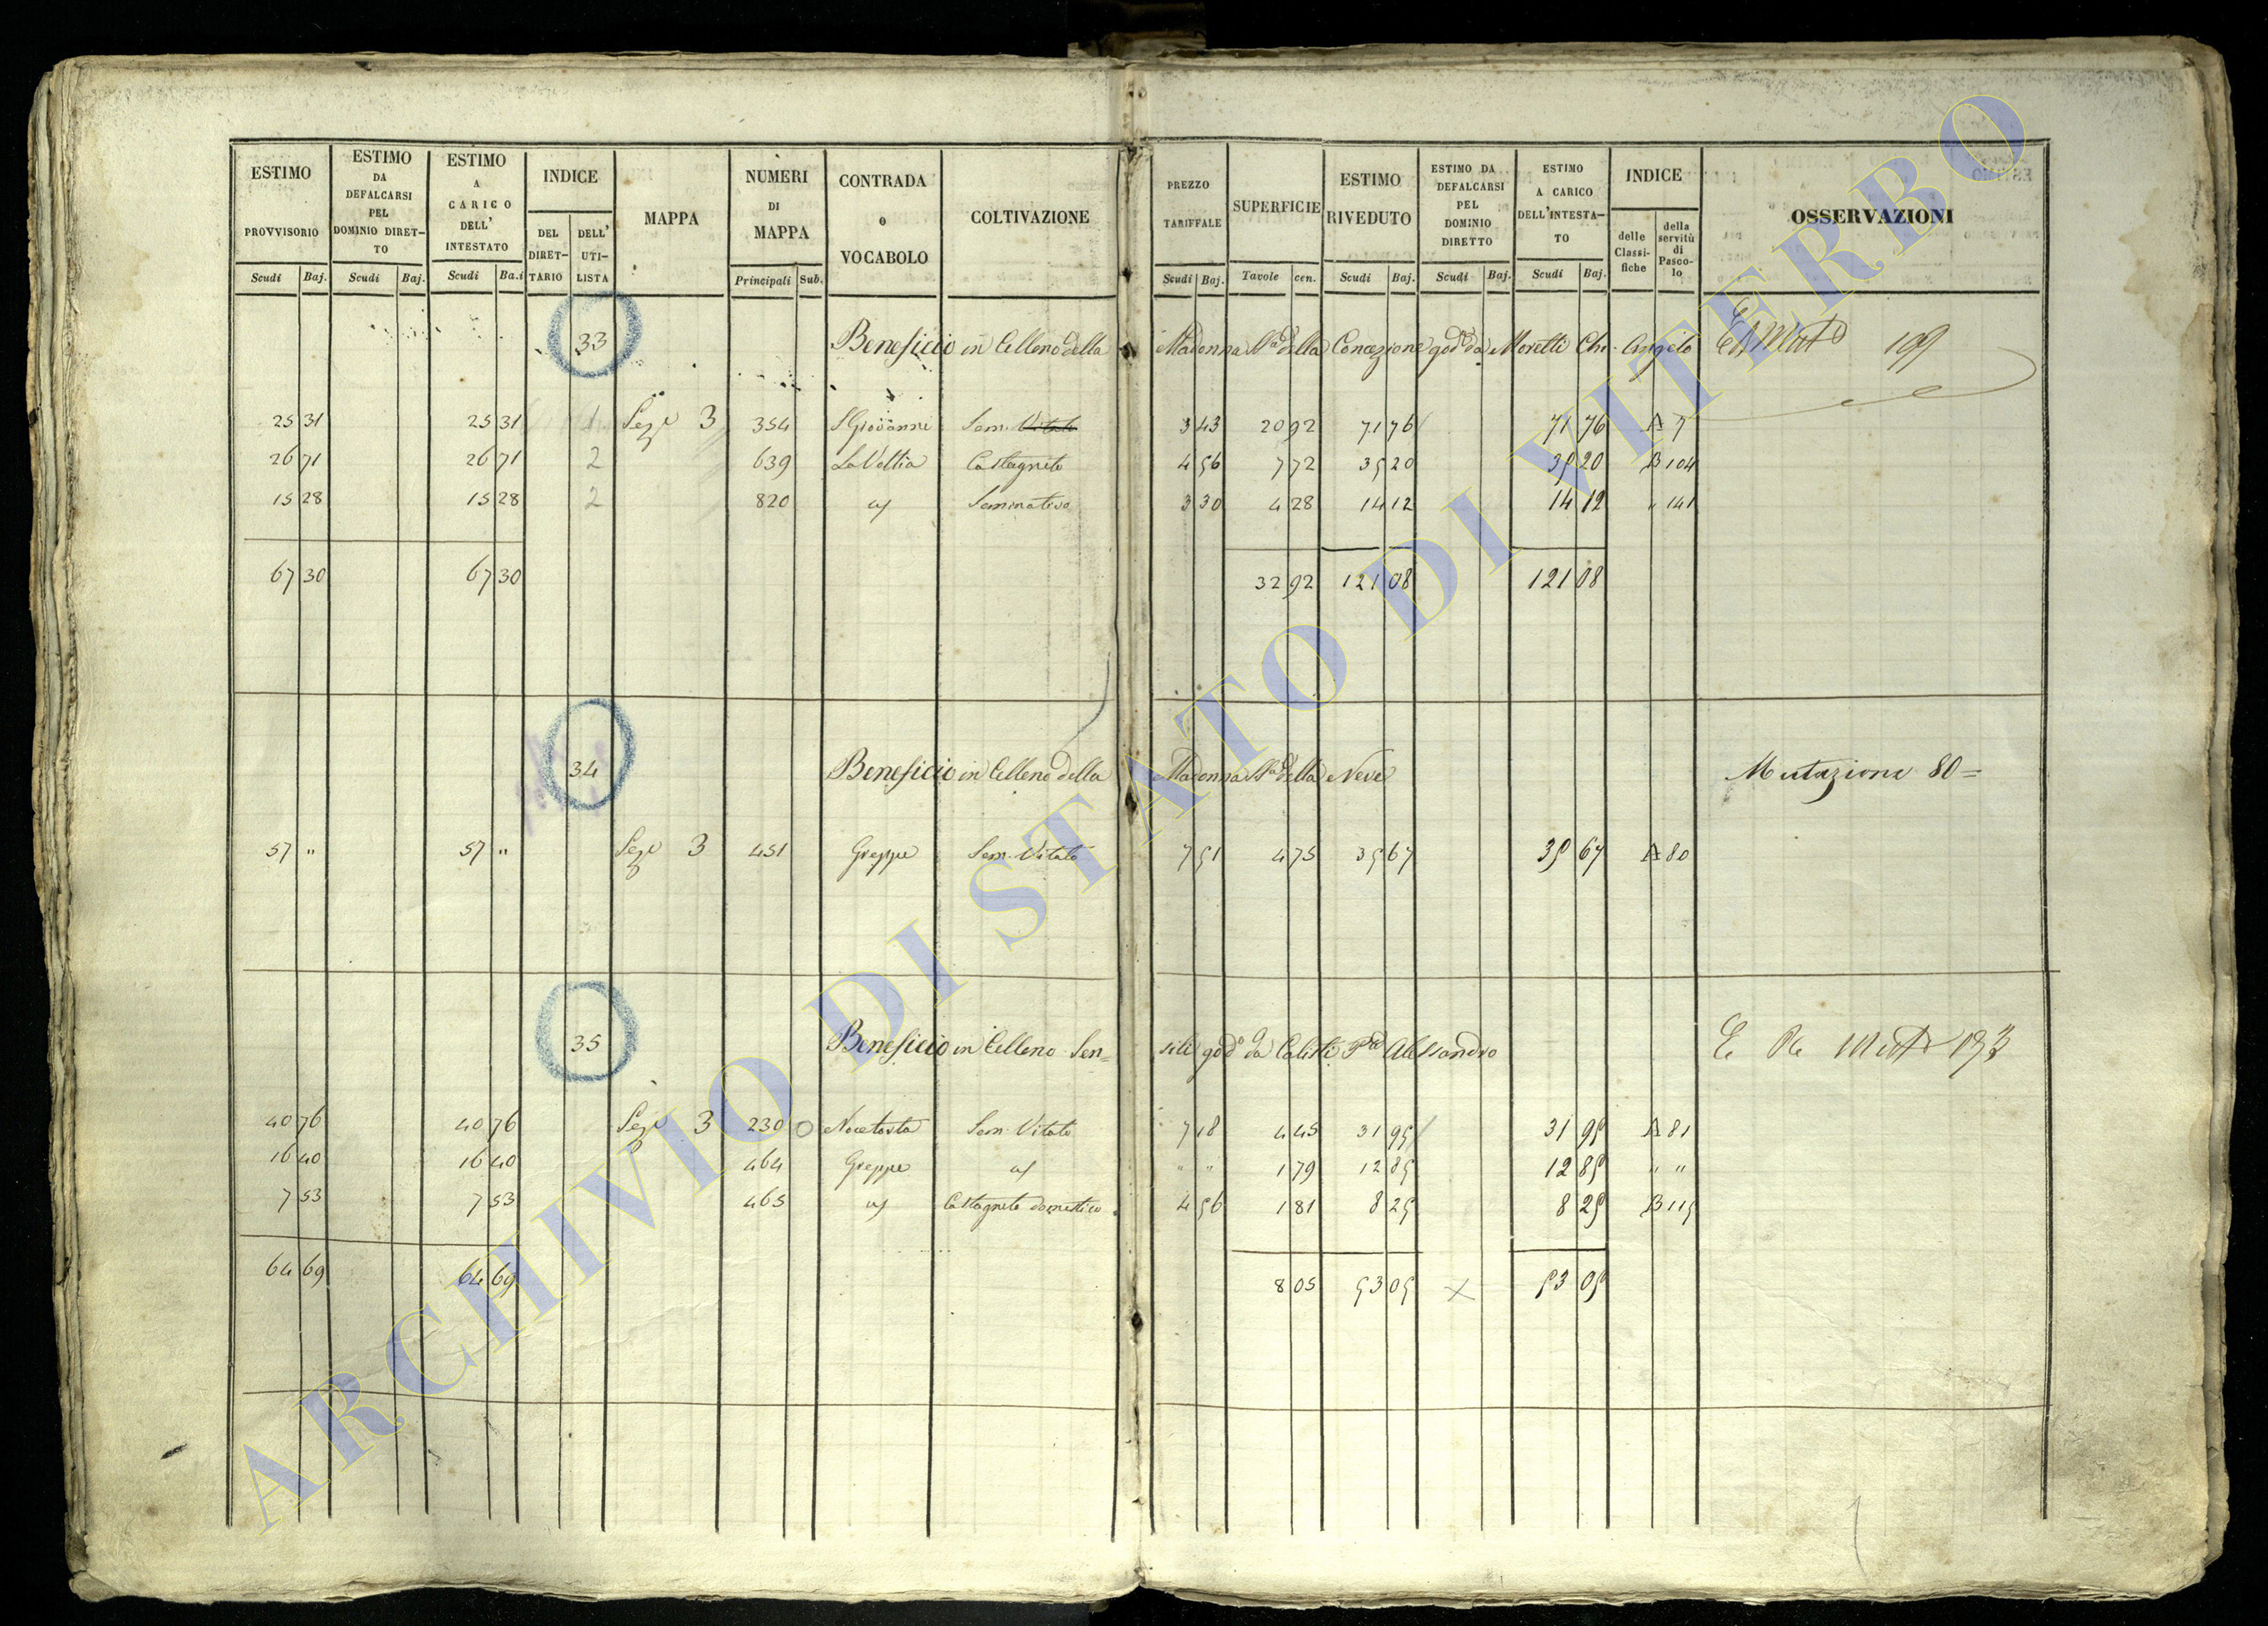 ESTIMO PROVVISORIO Scudi Baj.
ESTIMO DA DEFALCARSI PEL DOMINIO DIRET- TO Scudi Baj.
ESTIMO A CARICO DELL' INTESTATO Scudi Ba.i
INDICE DEL DIRET- TARIO DELL' UTI- LISTA
MAPPA
NUMERI DI MAPPA Principali Sub.
CONTRADA o VOCABOLO
COLTIVAZIONE
PREZZO TARIFFALE Scudi Baj.
SUPERFICIE Tavole cen.
ESTIMO RIVEDUTO Scudi Baj.
ESTIMO DA DEFALCARSI PEL DOMINIO DIRETTO Scudi Baj.
ESTIMO A CARICO DELL'INTESTA- TO Scudi Baj.
INDICE delle Classi- fiche della servitù di Pasco- lo
OSSERVAZIONI
33 Beneficio in Celleno della Madonna SSa della Concezione goda da Moretti Angelo 199
25 31 25 31 1 Sezе 3 354 S Giovanni Sem. Vitato 3 43 20 92 71 76 71 76 A 7
26 71 26 71 2 639 La Vettia Castagneto 4 56 7 72 35 20 35 20 B 104
15 28 15 28 2 820 Seminativo 3 30 4 28 14 12 14 12 " 141
67 30 67 30 32 92 121 08 121 08
34 Beneficio in Celleno della Madonna SSa della Neve Mutazione 80=
57 " 57 " Seze 3 451 Greppe Sem. Vitato 7 51 4 75 35 67 35 67 A 80
35 Beneficio in Celleno Sen= sili godo da Calisti Alessandro
40 76 40 76 Seze 3 230 Nocetosta Sem. Vitato 7 18 4 45 31 95 31 95 A 81
16 40 16 40 464 Greppe " " 1 79 12 85 12 85 " "
7 53 7 53 465 Castagneto domestico 4 56 1 81 8 25 8 25 B 115
64 69 64 69 8 05 53 05 X 53 05
ARCHIVIO DI STATO DI VITERBO